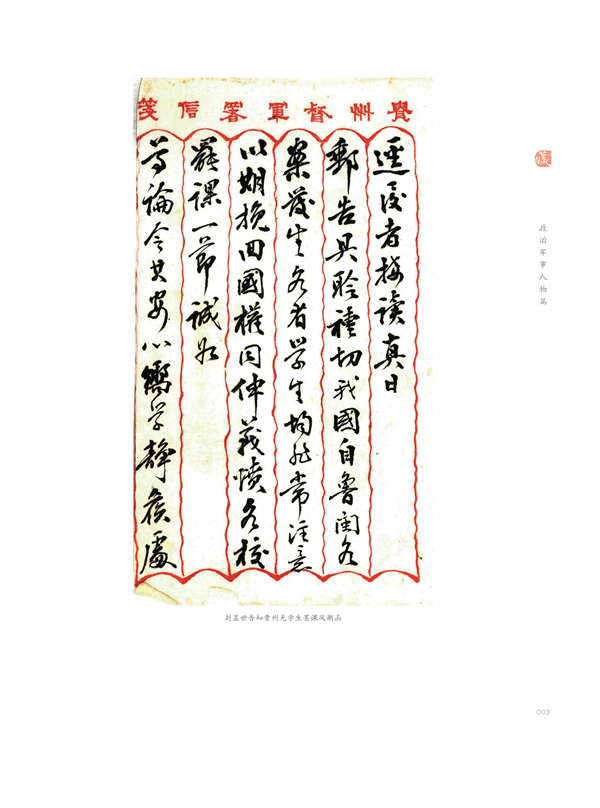 貴州督軍署信箋
逕復者接讀真日
郵告具聆種切我國自魯閩各
案發生各省學生均非常注意
以期挽回國權同伸義憤各校
罷課一節誠如
尊論令其安心嚮學靜候處
刘显世告知贵州无学生罢课风潮函
政治军事人物篇
003